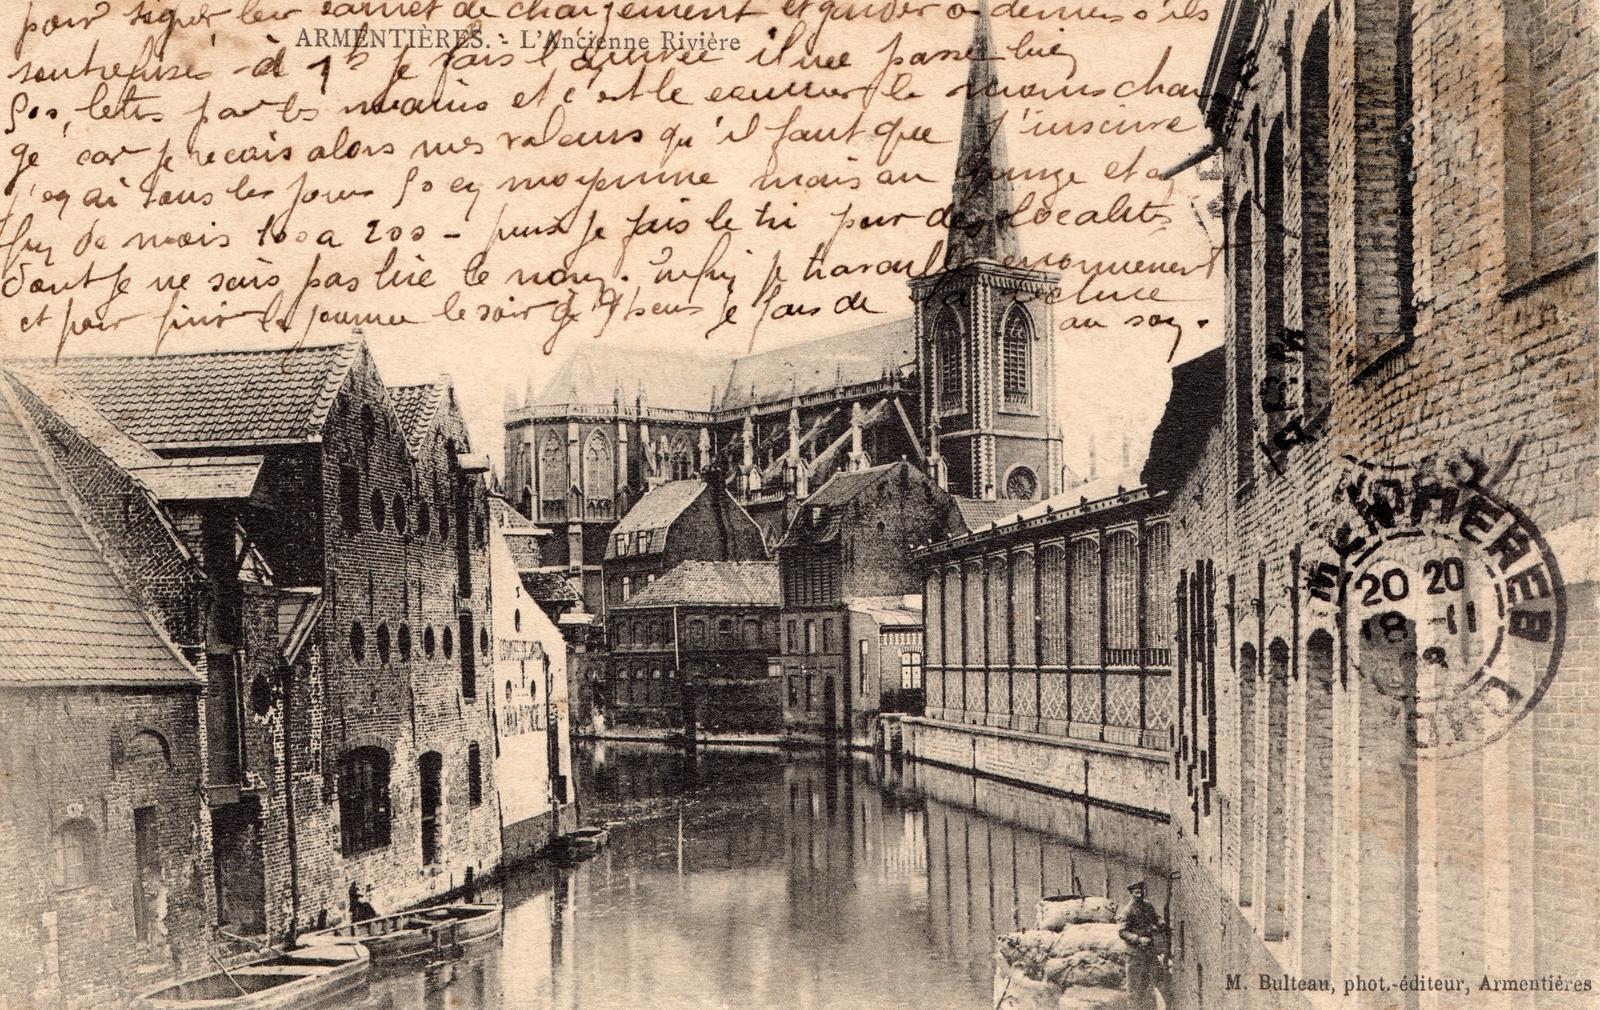 pour signer leur carnet de chargement et garder ceux s'ils
ARMENTIÈRES. - L'Ancienne Rivière
sont refusés - à 1h je fais l'arrivée il me passe bien
500 lettres par les mains et c'est le courrier le moins char
gé car je reçois alors mes valeurs qu'il faut que j'inscrive
j'en ai tous les jours 50 en moyenne mais au quinze et en
fin de mois 100 a 200 - puis je fais le tri pour des localités
dont je ne sais pas lire le nom. Enfin je travaille enormement
et pour finir la journée le soir de 7 heures je fais de la
au soir.
ARMENTIÈRES
20 20
18 - 11
08
NORD
M. Bulteau, phot.-éditeur, Armentières